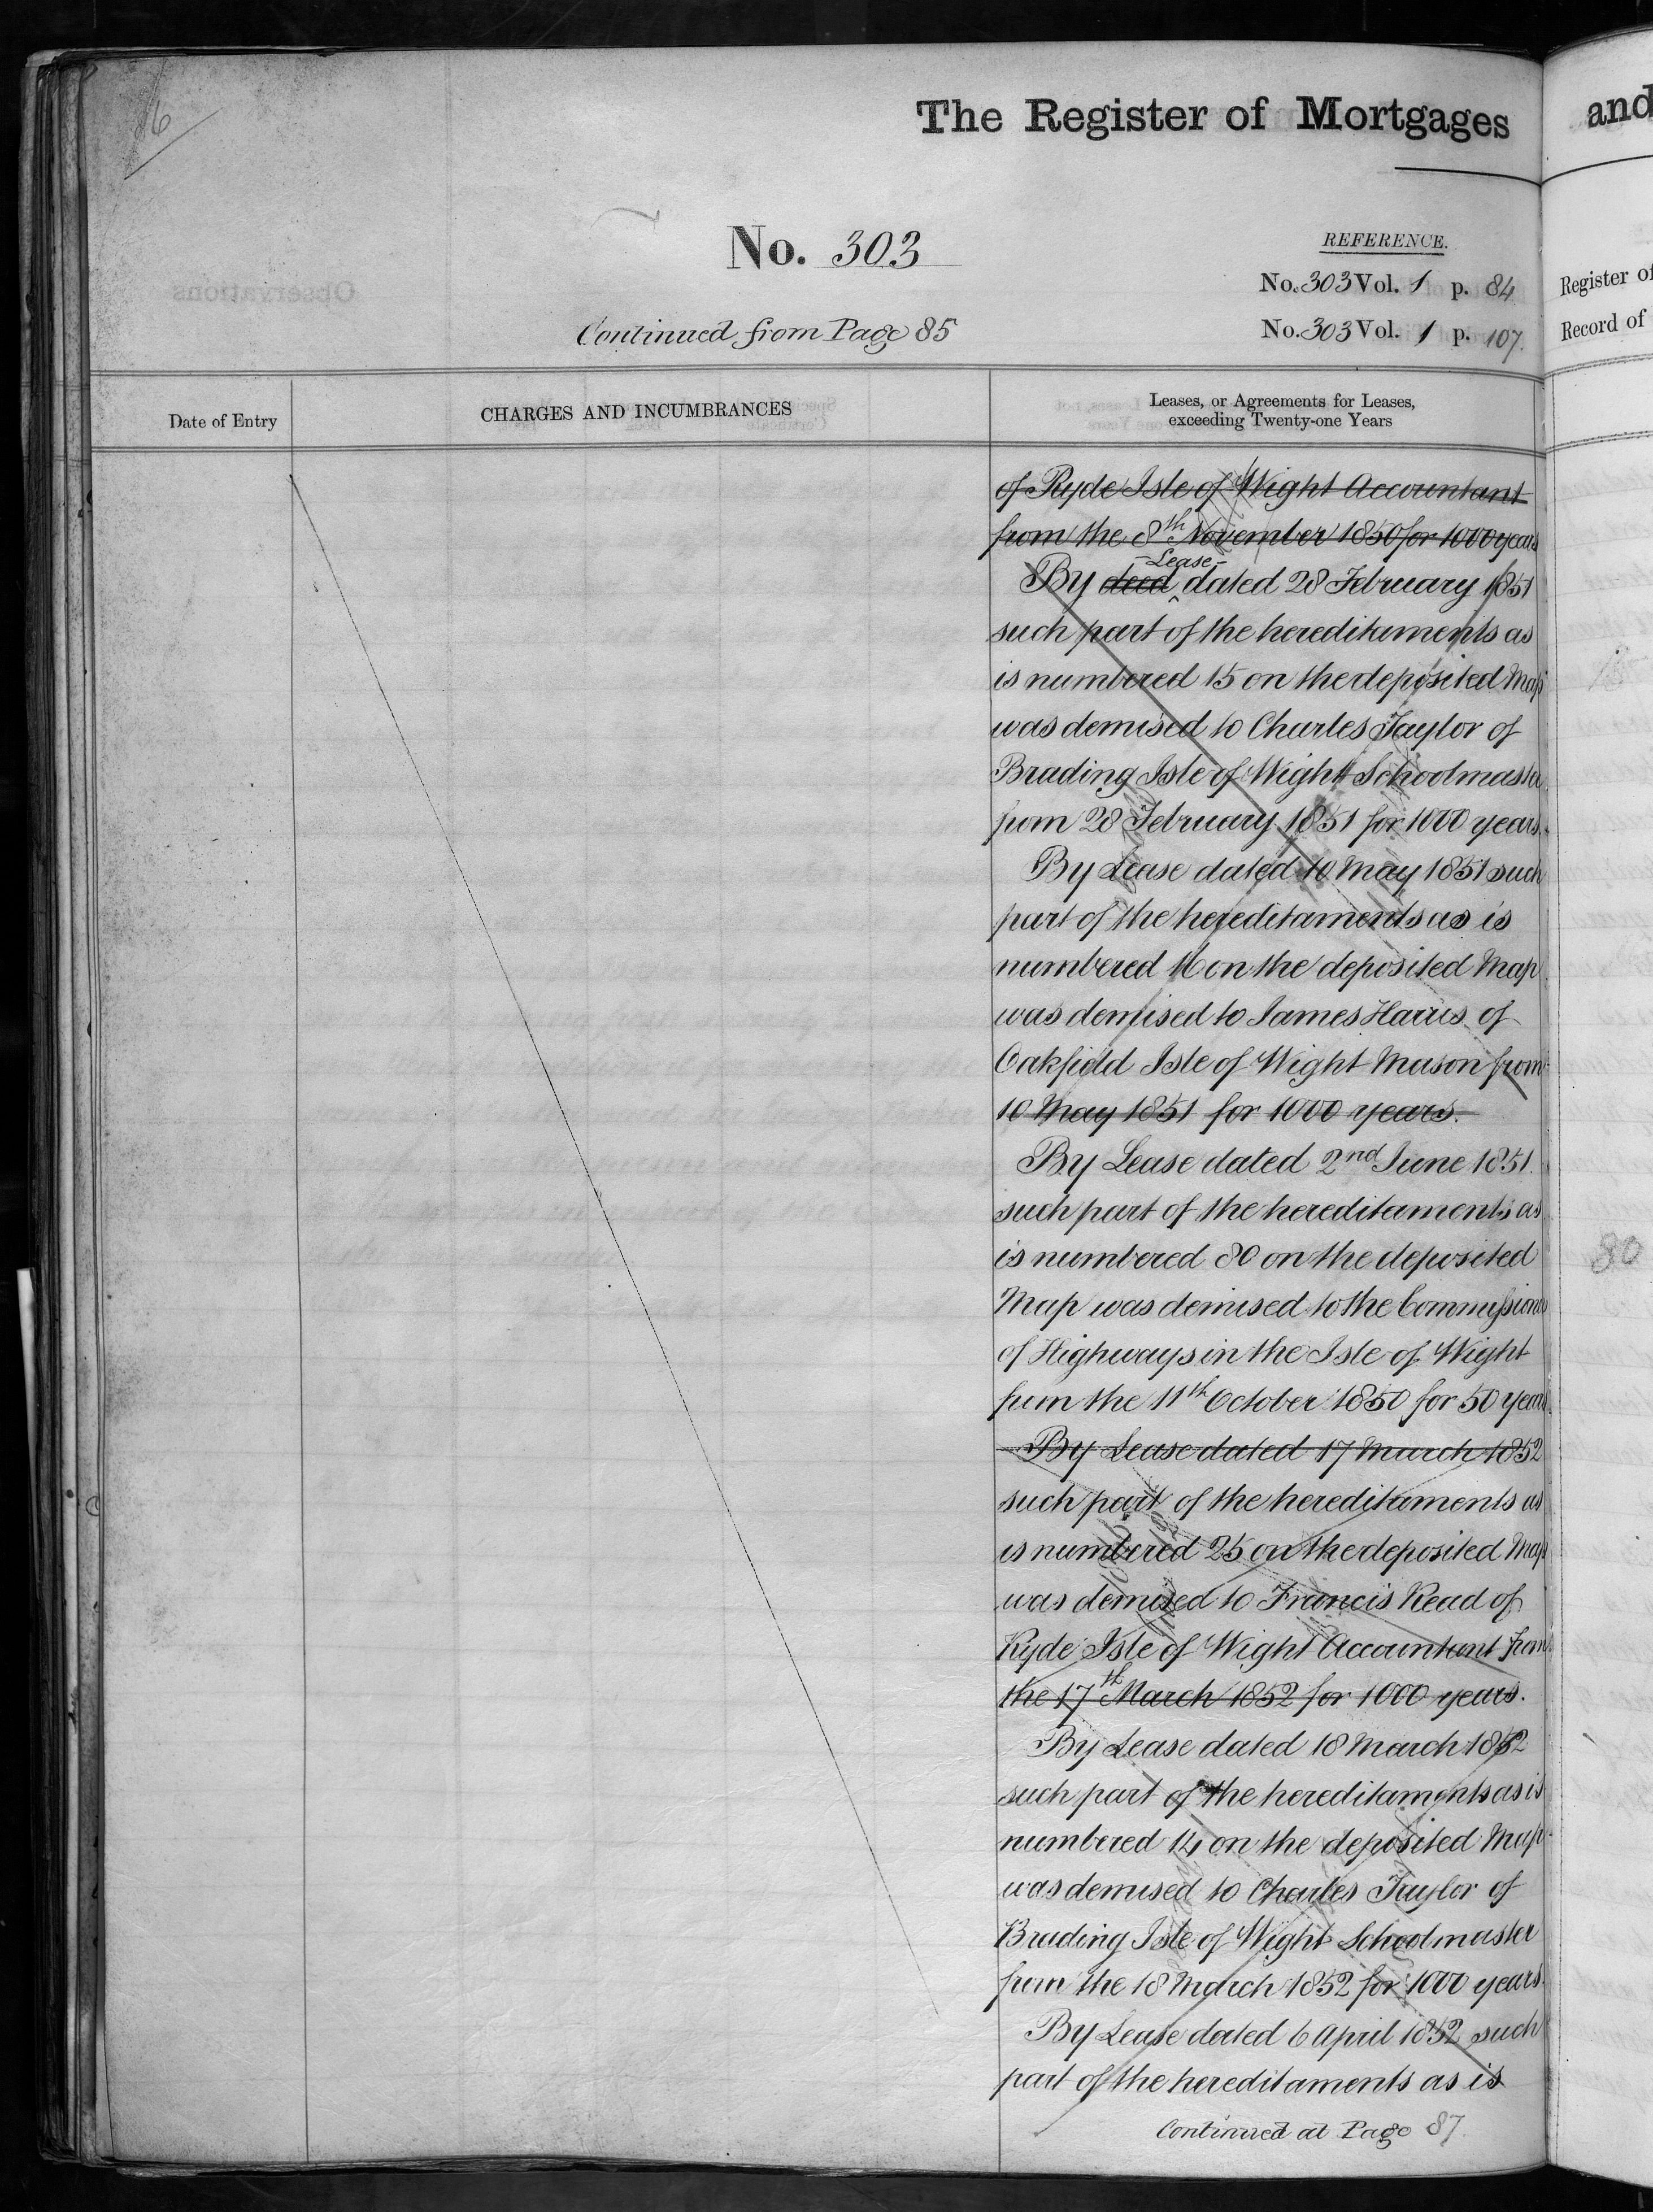 86
The Register of Mortgages
and
No. 303
REFERENCE.
No. 303 Vol. 1 p. 84
No. 303 Vol. 1 p. 107.
Continued from Page 85
Register of
Record of
Date of Entry
CHARGES AND INCUMBRANCES
Leases, or Agreements for Leases,
exceeding Twenty-one Years
of Ryde Isle of Wight Accountant
from the 8th November 1850 for 1000 years
Lease
By deed dated 28 February 1851
such part of the hereditaments as
is numbered 15 on the deposited Map
was demised to Charles Taylor of
Brading Isle of Wight Schoolmaster
from 28 February 1851 for 1000 years.
By Lease dated 10 May 1851 such
part of the hereditaments as is
numbered 16 on the deposited Map
was demised to James Harris of
Oakfield Isle of Wight Mason from
10 May 1851 for 1000 years.
By Lease dated 2nd June 1851
such part of the hereditaments as
is numbered 80 on the deposited
Map was demised to the Commissioners
of Highways in the Isle of Wight
from the 11th October 1850 for 50 years.
By Lease dated 17 March 1852
such part of the hereditaments as
is numbered 25 on the deposited Map
was demised to Francis Read of
Ryde Isle of Wight Accountant from
the 17th March 1852 for 1000 years.
By Lease dated 18 March 1852
such part of the hereditaments as is
numbered 14 on the deposited Map
was demised to Charles Taylor of
Brading Isle of Wight Schoolmaster
from the 18 March 1852 for 1000 years.
By Lease dated 6 April 1852 such
part of the hereditaments as is
Continued at Page 87
80